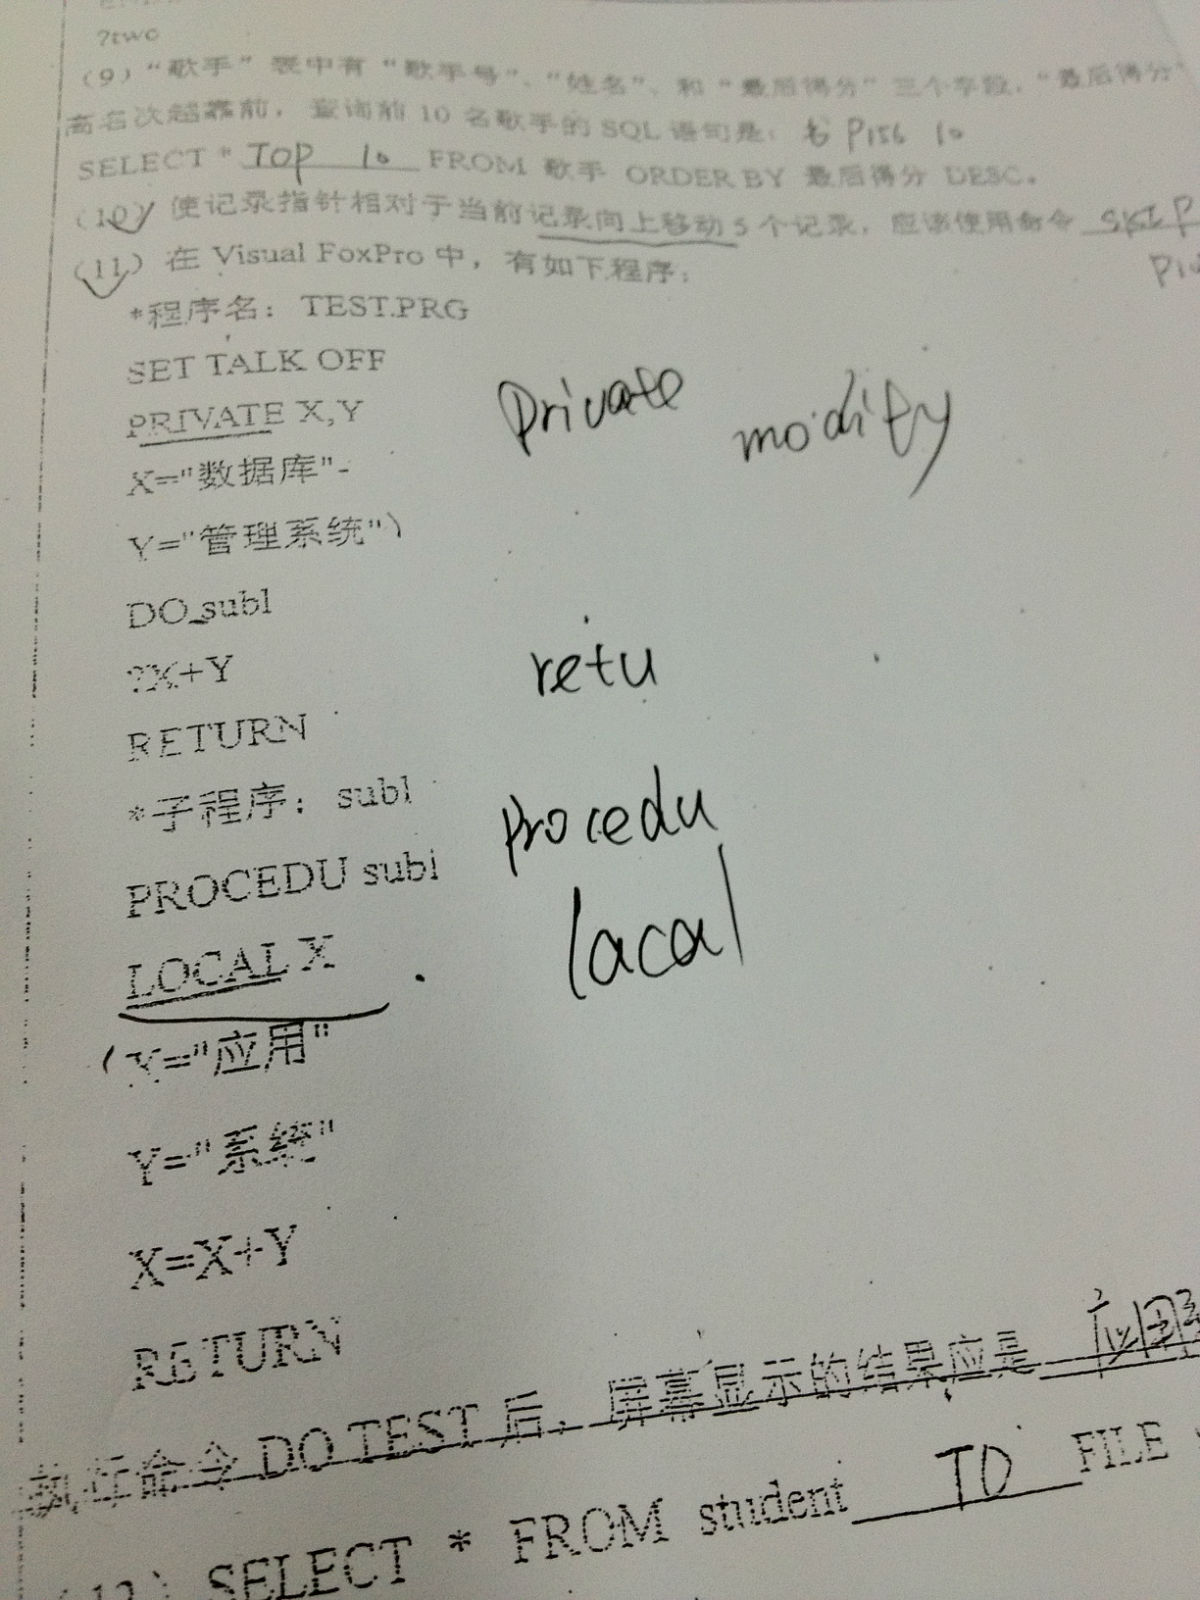 ?two
(9) “歌手” 表中有 “歌手号”、“姓名”、和 “最后得分” 三个字段, “最后得分”
高名次越靠前, 查询前 10 名歌手的 SQL 语句是: P156 10
SELECT * TOP 10 FROM 歌手 ORDER BY 最后得分 DESC.
(10) 使记录指针相对于当前记录向上移动 5 个记录, 应该使用命令 SKIP
(11) 在 Visual FoxPro 中, 有如下程序:
*程序名: TEST.PRG
SET TALK OFF
PRIVATE X,Y Private modify
X="数据库"
Y="管理系统")
DO subl
?X+Y retu
RETURN
*子程序: subl
PROCEDU subl procedu
LOCAL X lacal
X="应用"
Y="系统"
X=X+Y
RETURN
执行命令 DO TEST 后, 屏幕显示的结果应是 应用
(12) SELECT * FROM student TO FILE